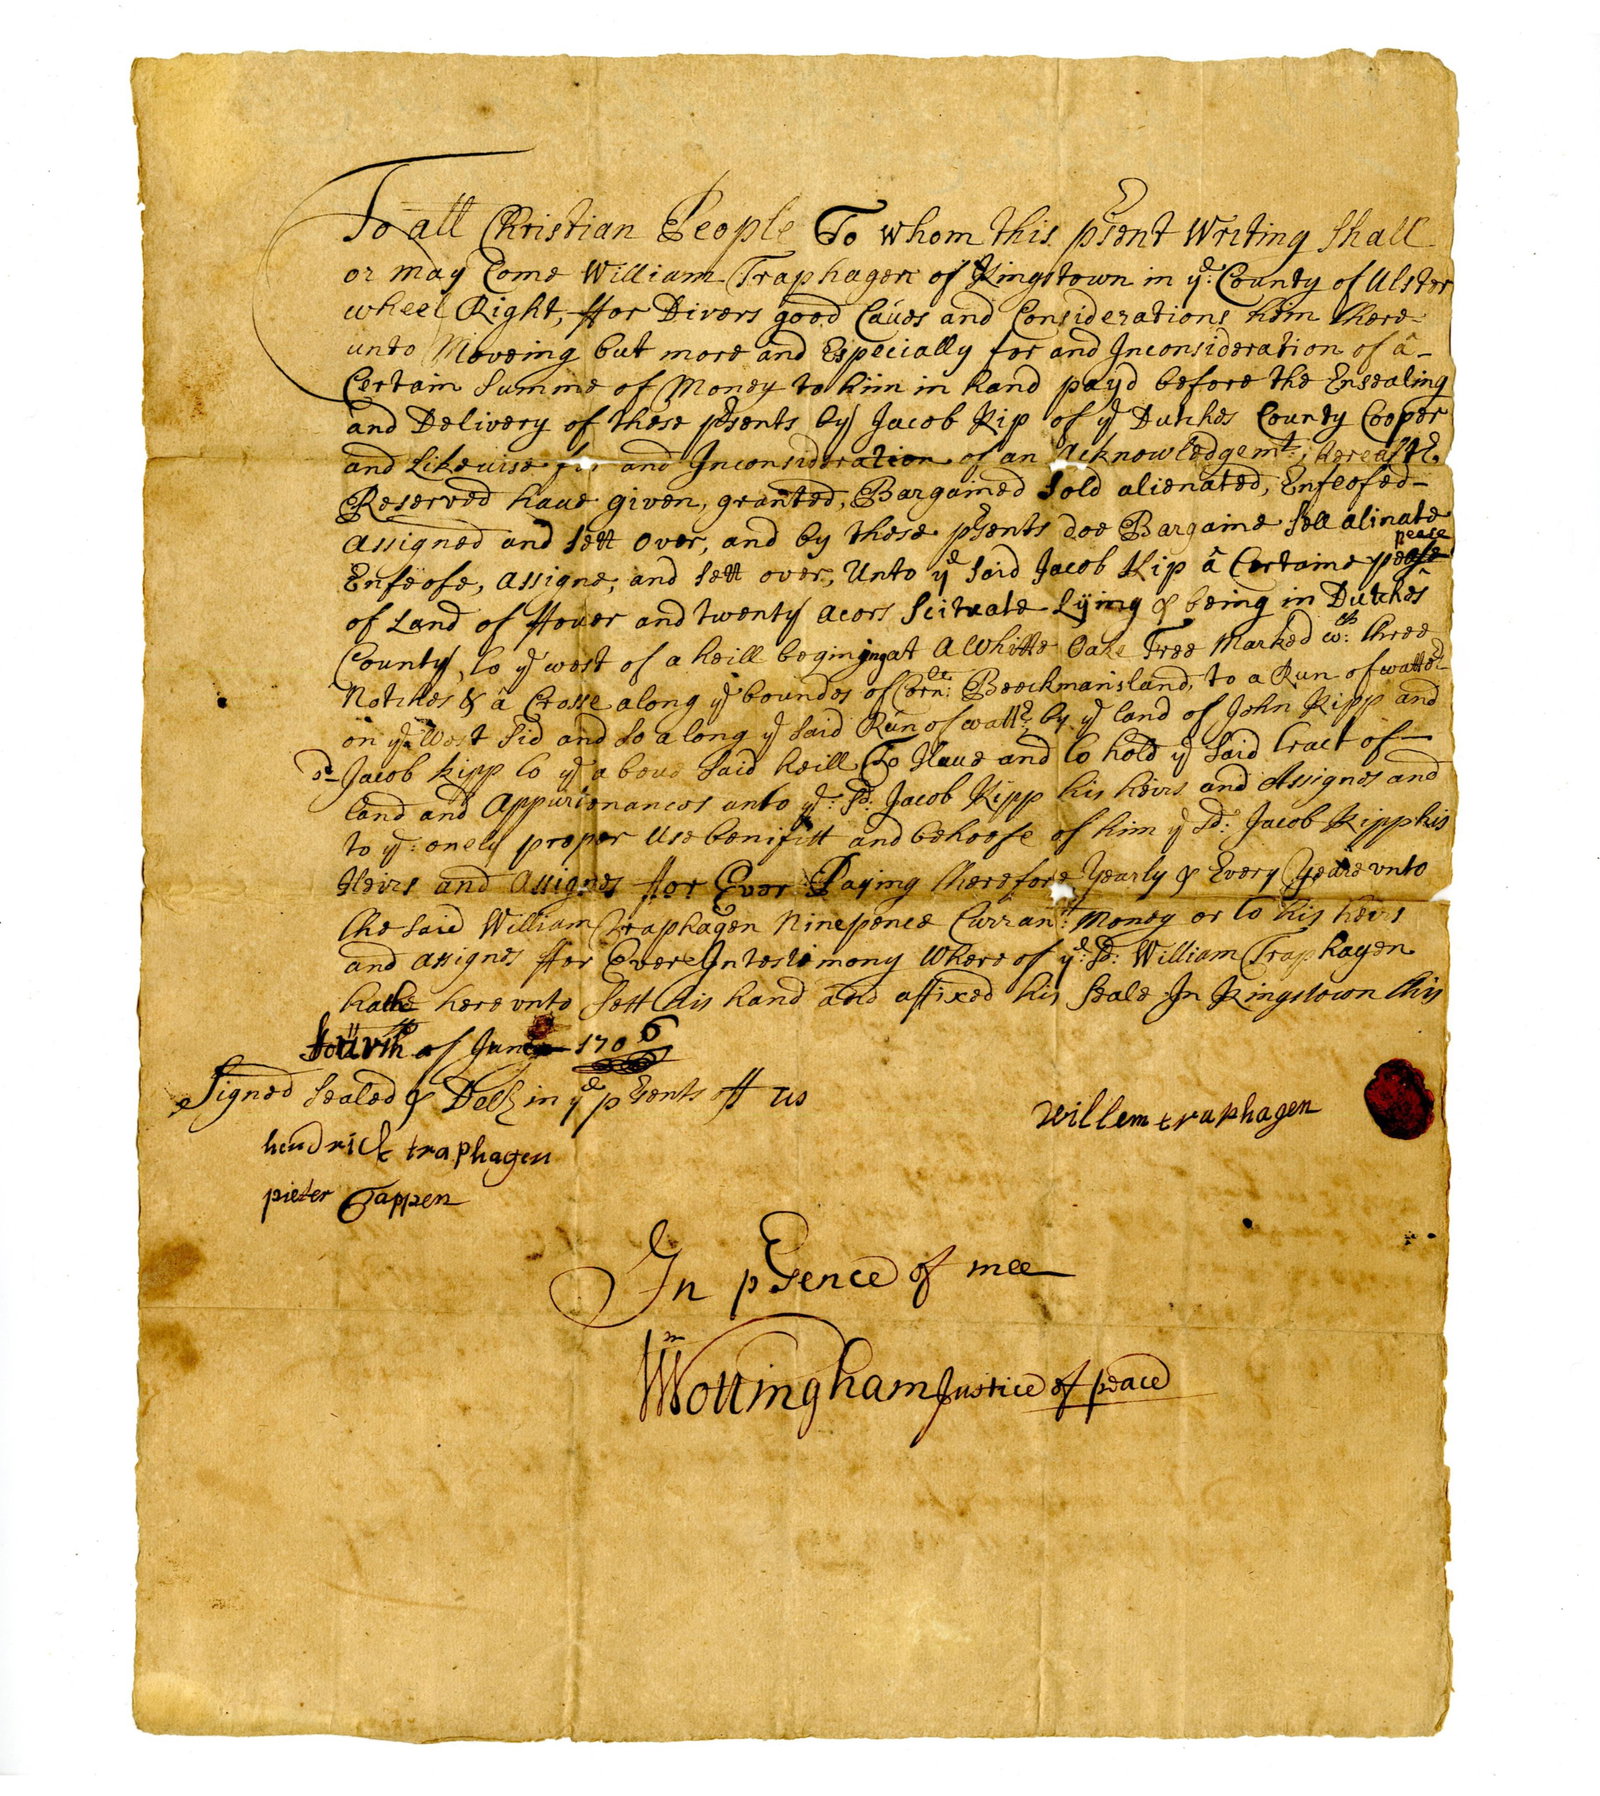 To all Christian People To whom this pᵉsent Writing Shall
or may Come William Traphagen of Kingstown in yᵉ: County of Ulster
wheel Right, ffor Divers good Caues and Considerations him there=
unto Moveing but more and Especially for and Inconsideration of â-
Certain Summe of Money to him in hand payd before the Ensealing
and Delivery of these pᵉsents by Jacob Kip of yᵉ Dutches County Cooper
and Likewise for and Inconsideration of an Acknowledgemᵗ: hereaftᵉʳ
Reserved haue given, granted, Bargained Sold alienated, Enfeofed-
assigned and sett over, and by these pᵉsents doe Bargaine Sell alinate
peace
Enfeofe, assigne, and sett over, Unto yᵉ Said Jacob Kip â Certaine pease
of Land of ffouer and twenty acors Scituate Lying & being in Dutches
County, to yᵉ west of a heill beginingat A Whitte Oake Tree Marked wᵗʰ: three
Notches & â Crosse along yᵉ boundes of Cornˡᵉ: Beeckmansland, to a Run of watteʳ
on yᵉ West Sid and So along yᵉ Said Run of wattʳ: by yᵉ land of John Kipp and
sᵈ Jacob kipp to yᵉ aboue Said heill To Haue and to hold yᵉ Said tract of
land and Appurtenances unto yᵉ: sᵈ: Jacob Kipp his heirs and Assignes and
to yᵉ: onely proper Use benifitt and behoofe of him yᵉ Sᵈ: Jacob Kipp his
Heirs and Assignes ffor Ever Paying therefore Yearly & Every Yeare vnto
the Said William Traphagen Ninepence Curranᵗ: Money or to his heirs
and assignes ffor Evere Intestimony Where of yᵉ: Sᵈ: William Traphagen
hathe here vnto Sett his hand and affixed his Seale In Kingstown this
fourth of June 1706
Signed Sealed & Delᵈ in yᵉ pᵉsents off us
Willem traphagen
hendrick traphagen
pieter Tappen
In pᵉsence of mee
Wᵐ Nottingham Justice of peace